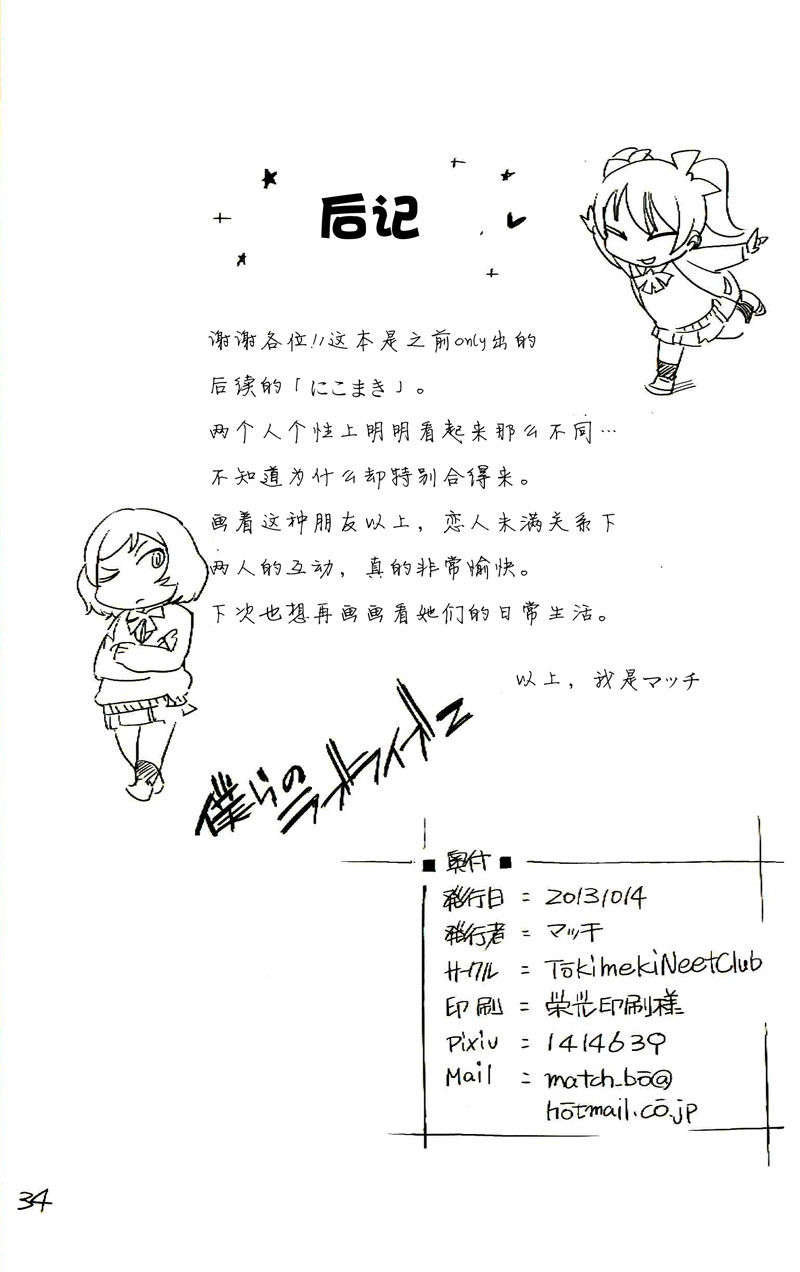 后记
谢谢各位!!这本是之前only出的
后续的「にこまき」。
两个人个性上明明看起来那么不同…
不知道为什么却特别合得来。
画着这种朋友以上，恋人未满关系下
两人的互动，真的非常愉快。
下次也想再画画看她们的日常生活。
以上，我是マッチ
僕らのラブライブ2
■ 奥付 ■
発行日 = 20131014
発行者 = マッチ
サークル = TokimekiNeetClub
印刷 = 栄光印刷様
Pixiv = 1414639
Mail = match_bo@
hotmail.co.jp
34